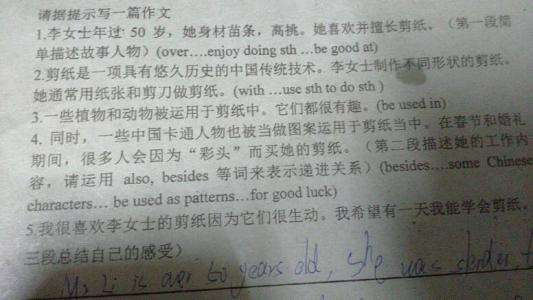 请据提示写一篇作文
1.李女士年过 50 岁，她身材苗条，高挑。她喜欢并擅长剪纸。（第一段简
单描述故事人物）(over….enjoy doing sth …be good at)
2.剪纸是一项具有悠久历史的中国传统技术。李女士制作不同形状的剪纸。
她通常用纸张和剪刀做剪纸。(with …use sth to do sth )
3.一些植物和动物被运用于剪纸中。它们都很有趣。(be used in)
4. 同时，一些中国卡通人物也被当做图案运用于剪纸当中。在春节和婚礼
期间，很多人会因为“彩头”而买她的剪纸。（第二段描述她的工作内
容，请运用 also, besides 等词来表示递进关系）(besides….some Chinese
characters… be used as patterns…for good luck)
5.我很喜欢李女士的剪纸因为它们很生动。我希望有一天我能学会剪纸。
三段总结自己的感受）
Ms Li is over 50 years old, she was slender,